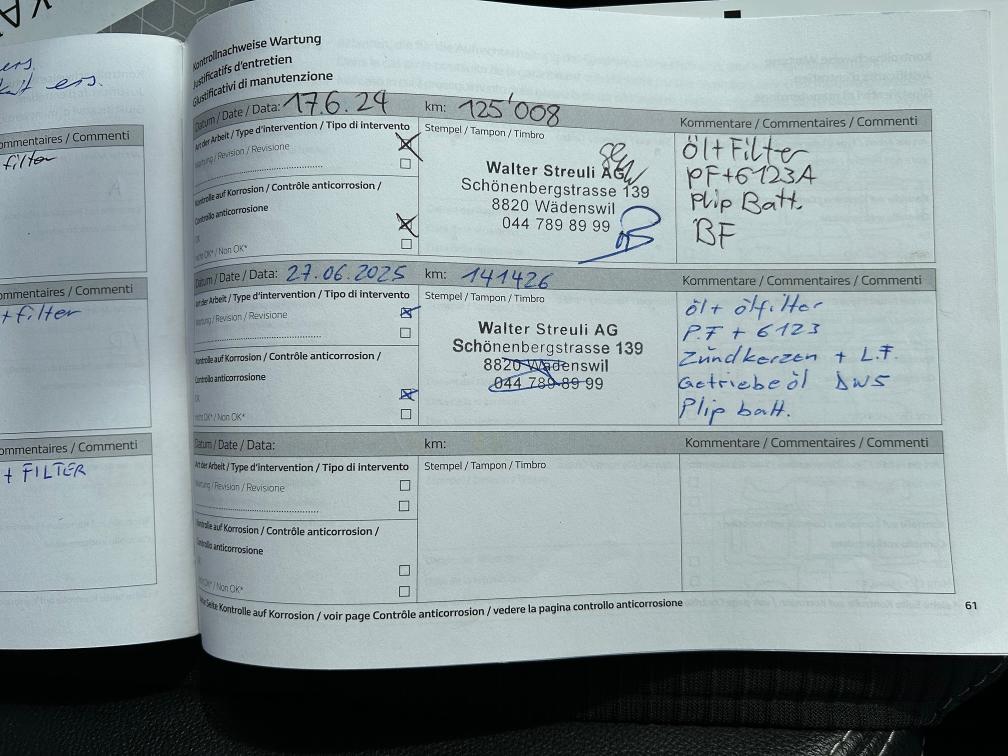 ers.
ers.
Commenti
filter
mmentaires / Commenti
+ filter
ommentaires / Commenti
+ FILTER
Kontrollnachweise Wartung
Justificatifs d'entretien
Giustificativi di manutenzione
Datum / Date / Data: 17.6.24 km: 125'008 Kommentare / Commentaires / Commenti
Art der Arbeit / Type d'intervention / Tipo di intervento
Wartung / Revision / Revisione
Kontrolle auf Korrosion / Contrôle anticorrosion /
Controllo anticorrosione
OK
nicht OK* / Non OK*
Stempel / Tampon / Timbro
Walter Streuli AG
Schönenbergstrasse 139
8820 Wädenswil
044 789 89 99
Öl + Filter
PF + 6123A
Plip Batt.
BF
Datum / Date / Data: 27.06.2025 km: 141426 Kommentare / Commentaires / Commenti
Art der Arbeit / Type d'intervention / Tipo di intervento
Wartung / Revision / Revisione
Kontrolle auf Korrosion / Contrôle anticorrosion /
Controllo anticorrosione
OK
nicht OK* / Non OK*
Stempel / Tampon / Timbro
Walter Streuli AG
Schönenbergstrasse 139
8820 Wädenswil
044 789 89 99
Öl + Ölfilter
P.F + 6123
Zündkerzen + L.F
Getriebeöl DW5
Plip batt.
Datum / Date / Data: km: Kommentare / Commentaires / Commenti
Art der Arbeit / Type d'intervention / Tipo di intervento
Wartung / Revision / Revisione
Kontrolle auf Korrosion / Contrôle anticorrosion /
Controllo anticorrosione
nicht OK* / Non OK*
Stempel / Tampon / Timbro
Seite Kontrolle auf Korrosion / voir page Contrôle anticorrosion / vedere la pagina controllo anticorrosione
61